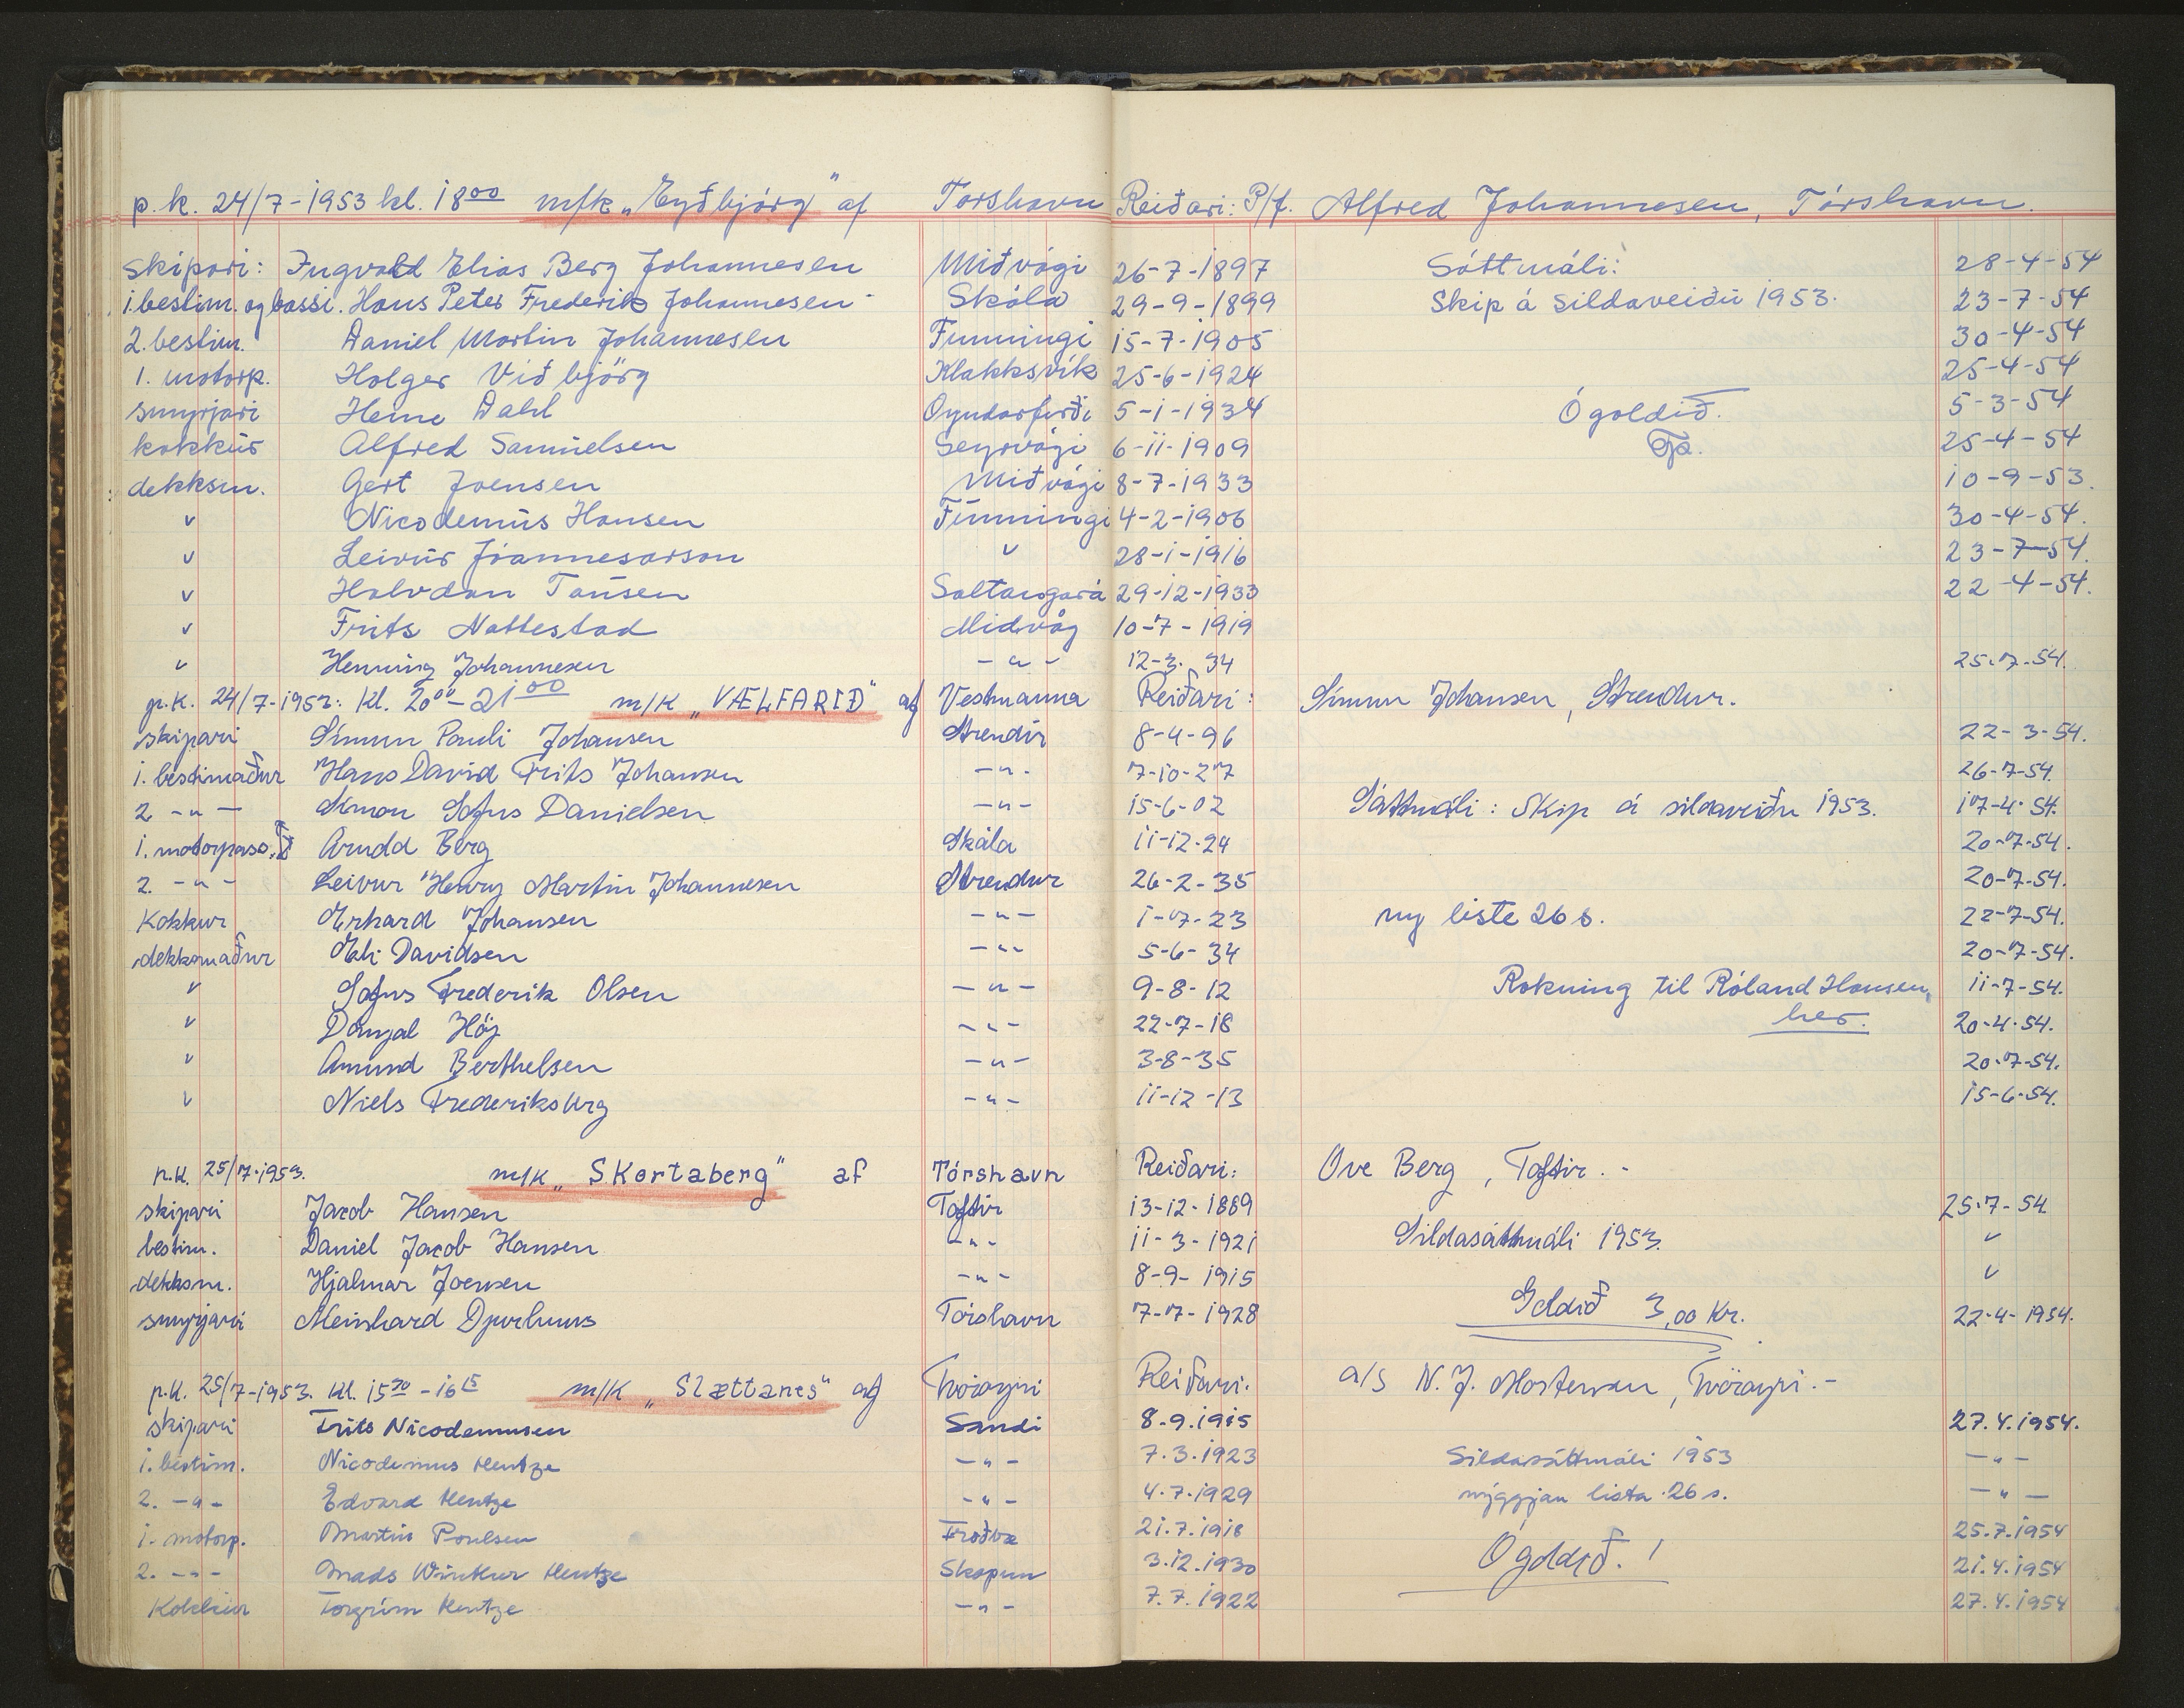 p.k. 24/7-1953 kl. 18⁰⁰ m/k „Eyðbjörg" af Torshavn Reiðari: P/f. Alfred Johannesen, Tórshavn.
skipari: Ingvald Elias Berg Johannesen Miðvági 26-7-1897 Sáttmáli: 28-4-54
1. bestim. og bassi. Hans Peter Frederik Johannesen Skála 29-9-1899 Skip á sildaveiðu 1953. 23-7-54
2. bestim. Daniel Martin Johannesen Funningi 15-7-1905 30-4-54
1. motorp. Holger Viðbjörg Klakksvík 25-6-1924 25-4-54
smyrjari Heine Dahl Oyndarfirði 5-1-1934 Ógoldið. 5-3-54
kokkur Alfred Samuelsen Seyrvági 6-11-1909 25-4-54
dekksm. Gert Joensen Miðvági 8-7-1933 10-9-53.
v Nicodemus Hansen Funningi 4-2-1906 30-4-54.
v Leivur Jóannesarson v 28-1-1916 23-7-54.
v Halvdan Tausen Saltangará 29-12-1933 22-4-54.
v Frits Nattestad Midvåg 10-7-1919
v Henning Johannesen -"- 12-3. 34 25-7-54.
p.k. 24/7-1953: Kl. 20⁰⁰-21⁰⁰ m/K „VÆLFARIÐ" af Vestmanna Reiðari: Símun Johansen, Strendur.
skipari Símun Pauli Johansen Strendir 8-4-96 22-3-54.
1. bestimaður Hans David Frits Johansen -"- 7-10-27 26-7-54.
2 -"- Simon Sofus Danielsen -"- 15-6-02 Sáttmáli: Skip á sildaveiðu 1953. 17-4-54.
1. motorpass. Arndd Berg Skála 11-12-24 20-7-54.
2. -"- Leivur Henry Martin Johannesen Strendur 26-2-35 20-7-54.
Kokkur Erhard Johansen -"- 1-7-23 ny liste 26 s. 22-7-54.
dekksmaður Eli Davidsen -"- 5-6-34 20-7-54.
v Sofus Frederik Olsen -"- 9-8-12 Rokning til Róland Hansen, 11-7-54.
v Danjal Höj -"- 22-7-18 her. 20-4-54.
v Amund Berthelsen -"- 3-8-35 20-7-54.
v Niels Frederiksberg -"- 11-12-13 15-6-54.
p.k. 25/7-1953. m/k „Skortaberg" af Tórshavn Reiðari: Ove Berg, Toftir.-
skipari Jacob Hansen Toftir 13-12-1889 25-7-54
bestim. Daniel Jacob Hansen -"- 11-3-1921 Sildasáttmáli 1953. v
dekksm. Hjalmar Joensen -"- 8-9-1915 v
smyrjari Meinhard Djurhuus Tórshavn 7-7-1928 Goldið 3,00 Kr. 22-4-1954.
p.k. 25/7-1953. Kl. 15³⁰-16¹⁵ m/K „Slættanes" af Tvöroyri Reiðari: a/s N. J. Mortensen, Tvöroyri.-
skipari Frits Nicodemusen Sandi 8-9.1915 27.4.1954.
1. bestim. Nicodemus Hentze -"- 7.3.1923 Sildasáttmáli 1953 -"-
2. -"- Edvard Hentze -"- 4.7.1929 nýggjan lista 26 s. -"-
1. motorp. Martin Poulsen Froðba 21.7.1918 25.7.1954
2. -"- Mads Winther Hentze Skopun 3.12.1930 Ógoldið.! 21.4.1954
Kokkur Torgrim Hentze -"- 7.7.1922 27.4.1954